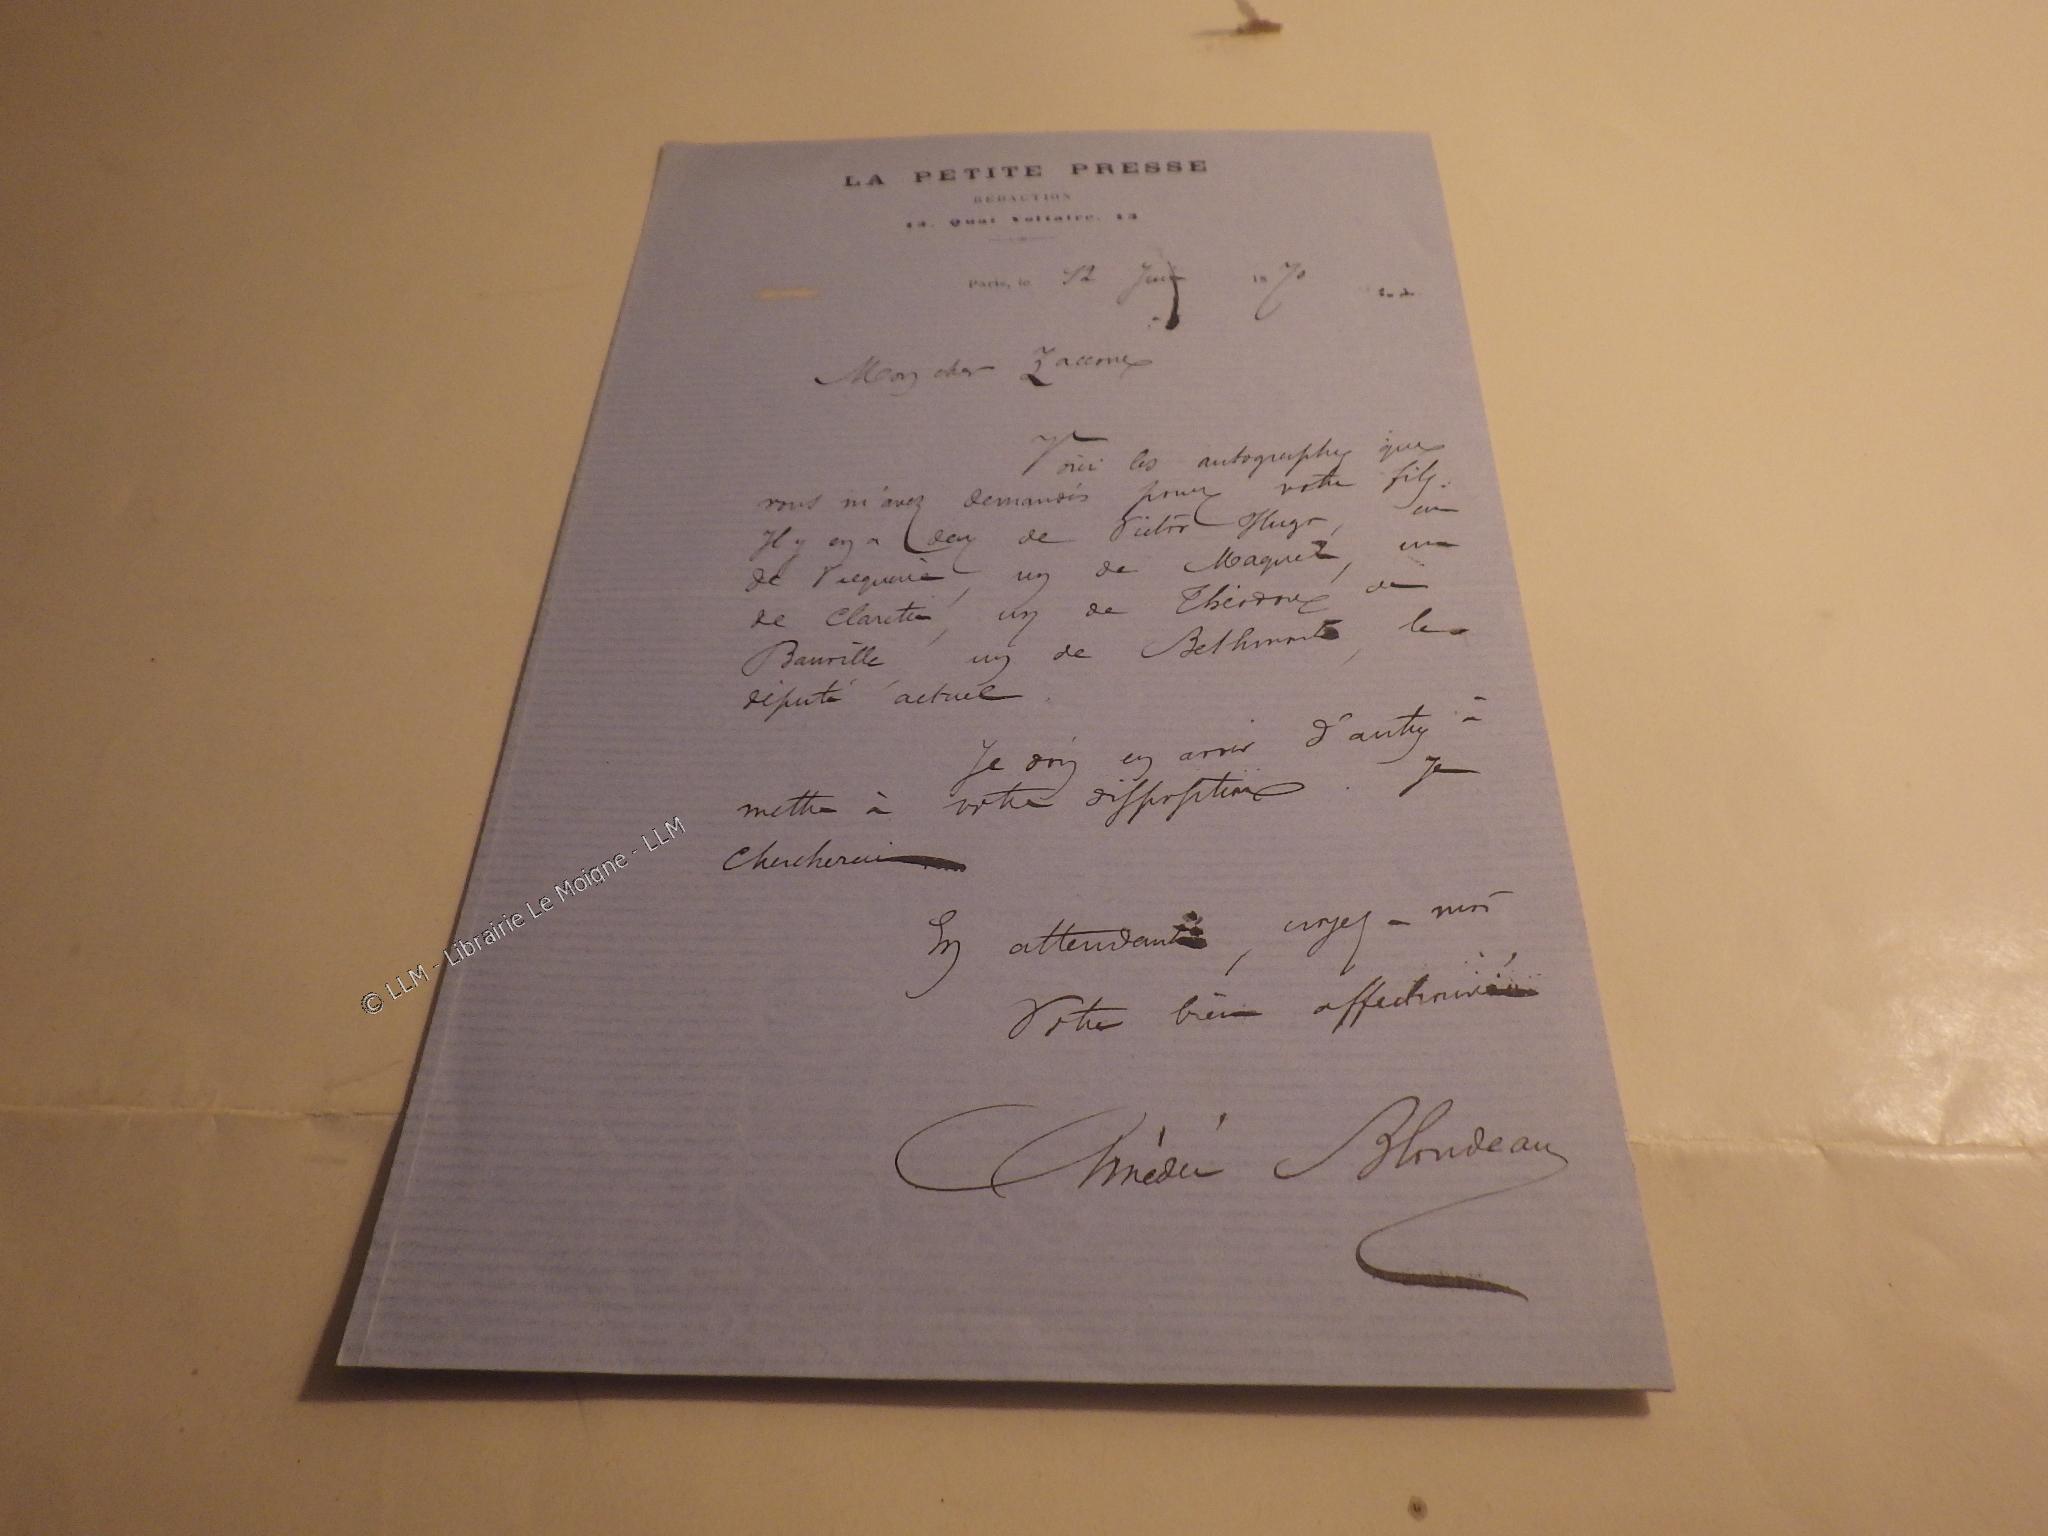 LA PETITE PRESSE
RÉDACTION
13, Quai Voltaire, 13
Paris, le 12 Juin 1870
Mon cher Zaccone
Voici les autographes que
vous m'avez demandés pour votre fils.
Il y en a deux de Victor Hugo, un
de Vacquerie, un de Maquet, un
de Claretie, un de Théodore de
Banville, un de Bethmont, le
député actuel.
Je dois en avoir d'autres à
mettre à votre disposition. Je
chercherai
En attendant, croyez-moi
Votre bien affectionné
Amédée Blondeau
© LLM - Librairie Le Moigne - LLM